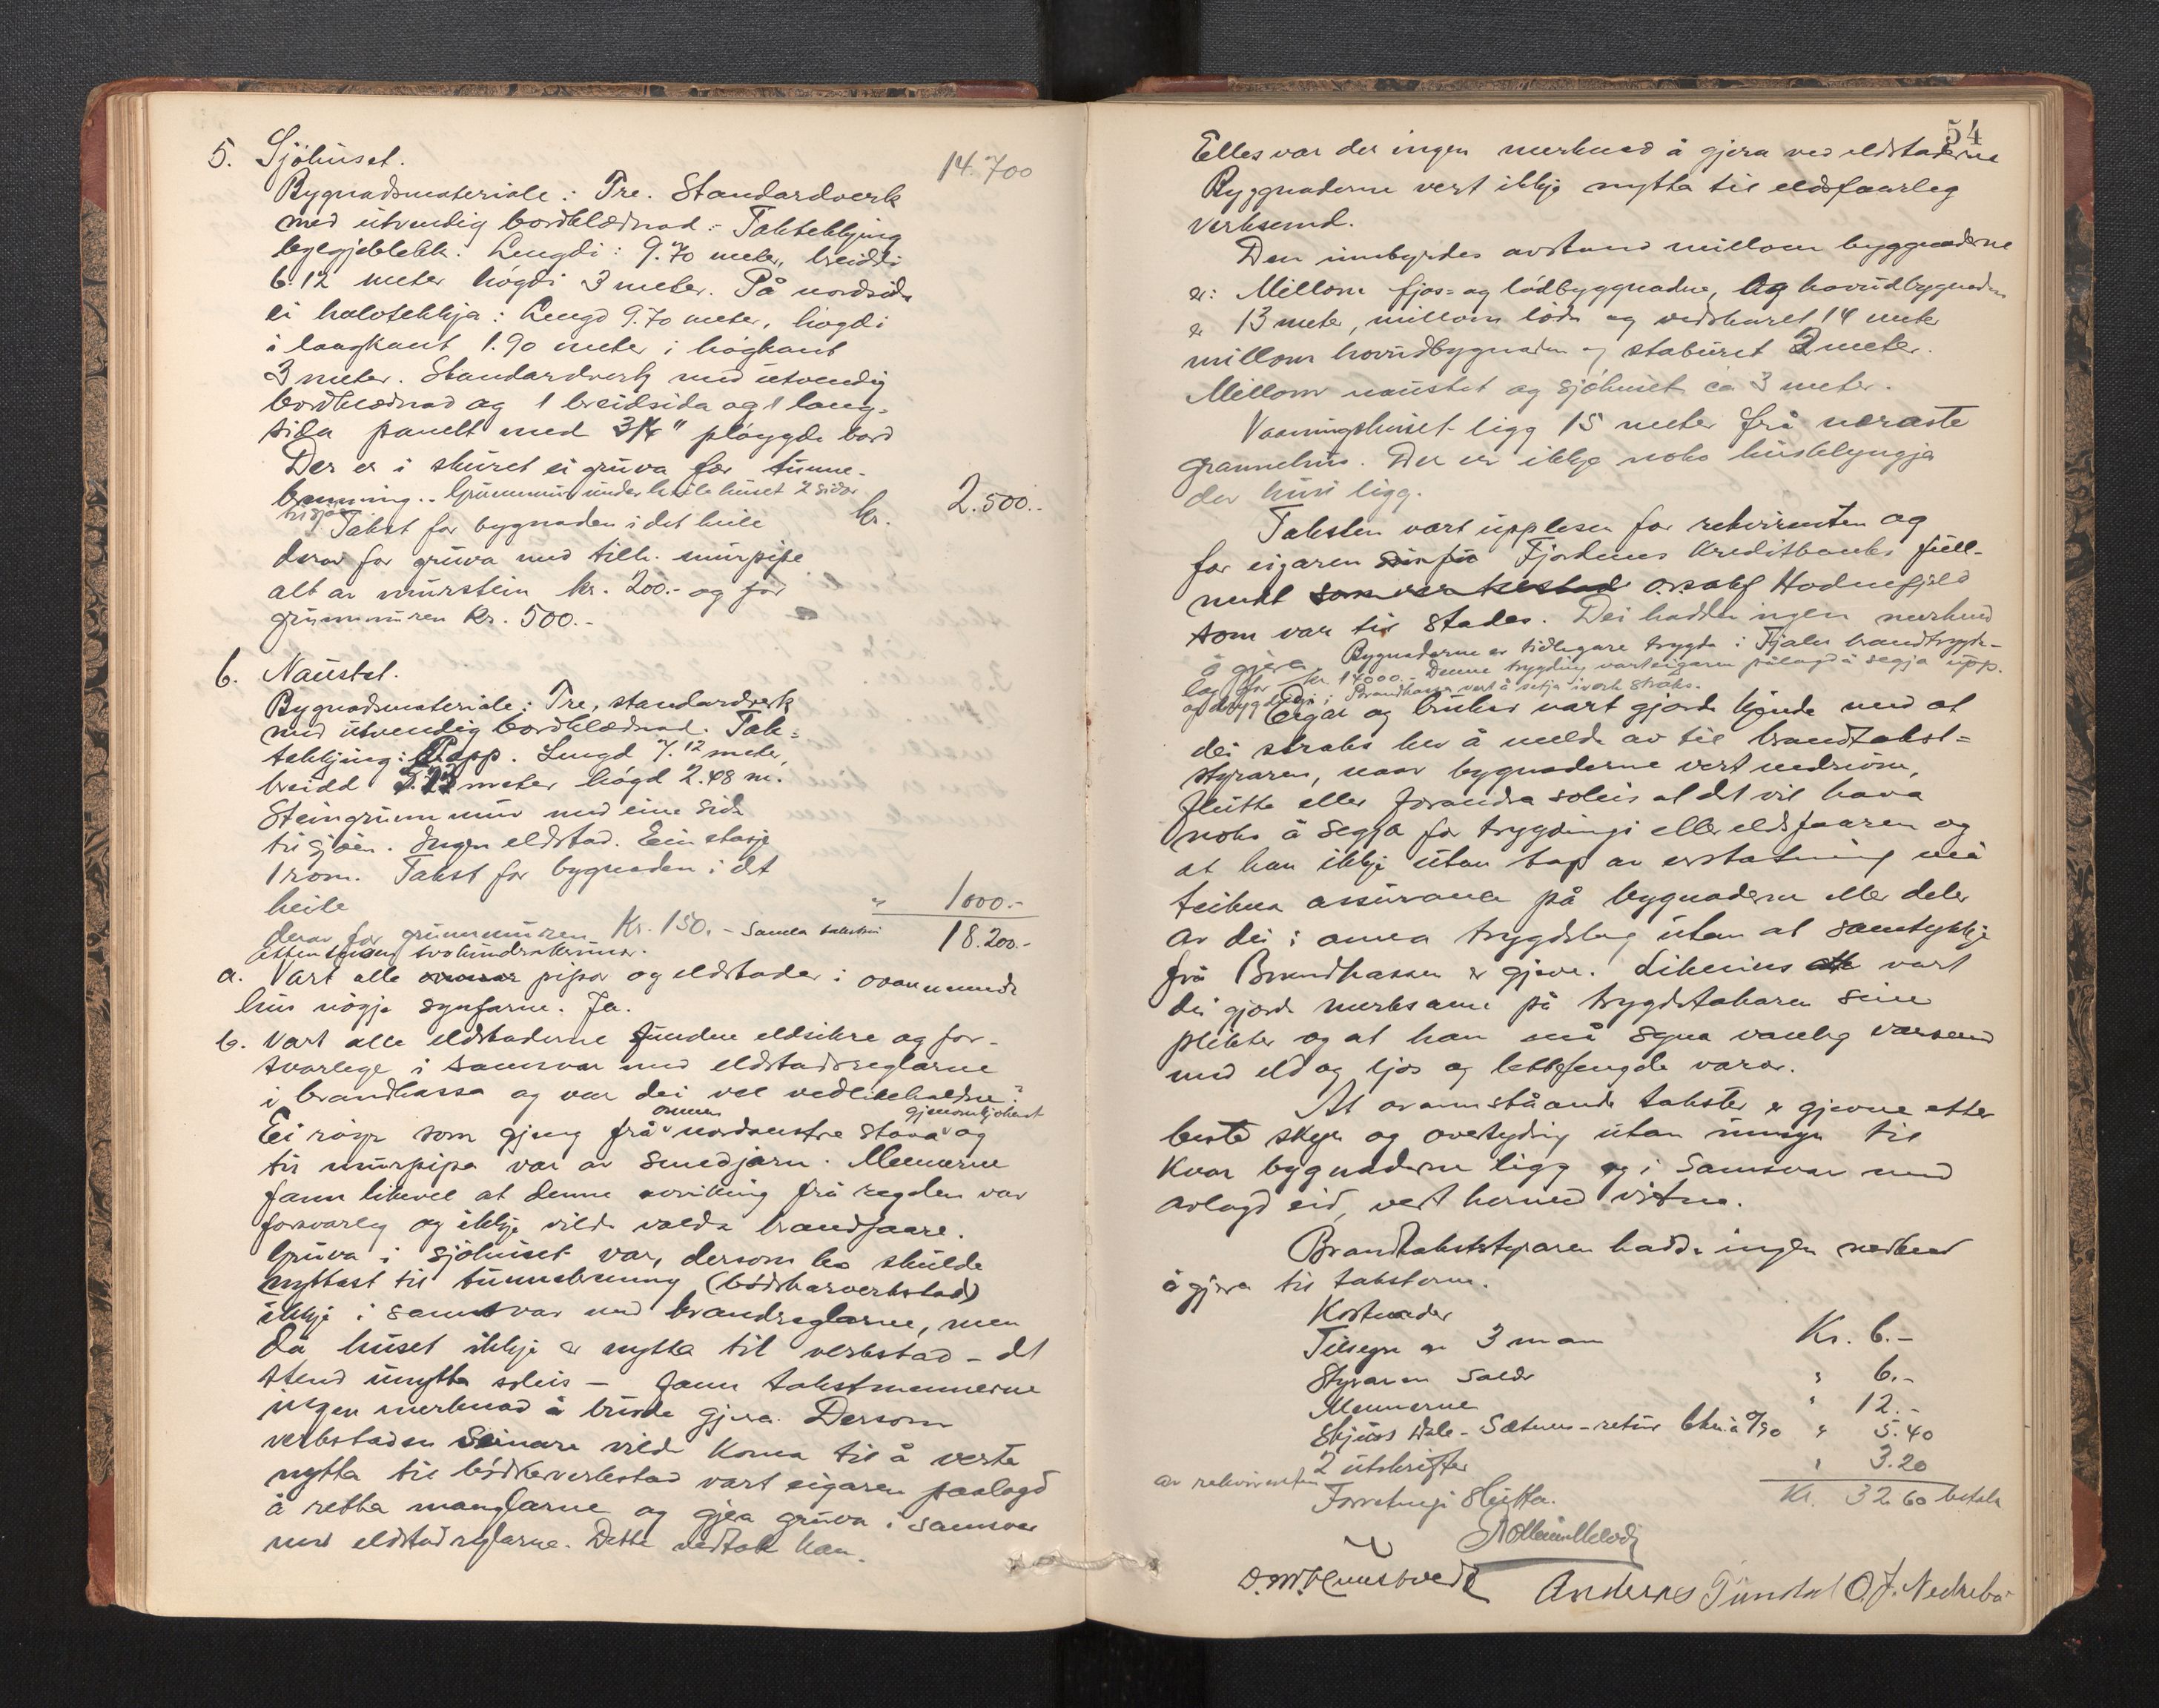 5. Sjóhúset. 14.700
Bygnadsmateriale: Tre. Standardverk
med útvendig bordklædnad. Taktekkjing
bylgjeblekk. Lengdi: 9.70 meter, breiddi
6.12 meter høgdi 3 meter. På nordsida
ei halvtekkja: Lengd 9.70 meter, høgdi
i laagkant 1.90 meter i høgkant
3 meter. Standardverk med útvendig
bordklædnad og 1 breidsida og 1 lang-
sida panelt med 3/4" pløygde bord
Der er i skúret ei grúva for túnne-
brenning. Grúnnmúr únder heile húset 2 sidor
til sjøen
Takst for bygnaden i det heile kr. 2.500.-
derav for grúva med tilh. múrpipe
alt av múrstein kr. 200.- og for
grúnnmúren kr. 500.-
6. Naústet.
Bygnadsmateriale: Tre, standardverk
med útvendig bordklædnad. Tak-
tekkjing: Papp. Lengd 7.12 meter,
breidd meter høgd 2.48 m.
Steingrúnnmúr med eine sida
til sjøen. Ingen eldstad. Ein etasje
1 rom. Takst for bygnaden i det
heile " 1000.-
derav for grúnnmúren Kr. 150.- Samla taksten 18.200.-
Attentúsen tvohúndra krúnor.
a. Vart alle pipor og eldstader i ovannemnde
hús nøgje synfarne. Ja.
b. Vart alle eldstaderne fúndne eldsikre og for-
svarlege i samsvar med eldstadsreglarne
i brandkassa og var dei vel vedlikehaldne?
omnen gjenom kjøkent
Ei røyr som gjeng frå nordaustre stova og
til múrpipa var av smedjarn. Mennerne
fann likevel at denne avviking frå reglen var
forsvarleg og ikkje vilde valda brandfaare.
Grúva i sjøhúset var, dersom ho skúlde
nyttast til túnnebrenning (bødkarverkstad)
ikkje i samsvar med brandreglarne, men
då húset ikkje er nytta til verkstad - det
stend únytta soleis - fann takstmennerne
ingen merknad å búrde gjera. Dersom
verkstaden seinare vilde koma til å verta
nytta til bødkeverkstad vart eigaren paalagd
å retta manglarne og gjera grúva i samsvar
med eldstadreglarne. Dette vedtok han.
54
Elles var der ingen merknad å gjera ved eldstaderne
Byggnaderne vert ikkje nytta til eldsfaarleg
verksemd.
Den innbyrdes avstand millom byggnaderne
er: Millom fjos- og lødbyggnadne, og hovúdbygnaden
er 13 meter, millom løda og vedskúret 14 meter
millom hovúdbygnaden og stabúret 2 meter.
Millom naústet og sjøhúset ca 3 meter.
Vaaningshúset ligg 15 meter frå næraste
grannehús. Der er ikkje noko húsklyngja
der húsi ligg.
Taksten vart úpplesen for rekvirenten og
for eigaren Fjordenes Kreditbanks fúll-
mekt o.r.sakf Hodnefjeld
som var til stades. Dei hadde ingen merknad
å gjera. Bygnaderne er tidlegare trygda i Fjaler brandtrygde-
lag for kr. 14000.- Denne trygding vart eigaren pålagd å segja upp.
og trygdingi i Brandkassa vert å setja i verk straks.
Eigar og brúkar vart gjorde kjende med at
dei straks har å melde av til brandtakst-
styraren, naar bygnaderne vert nedrivne,
flútte eller forandra soleis at det vil hava
noko å segja for trygdingi eller eldsfaaren og
at han ikkje útan tap av erstatning må
teikna assúranse på bygnaderne eller deler
av dei i anna trygdslag útan at samtykkje
frå Brandkassen er gjeve. Likeeins vart
dei gjorde merksame på trygdetakaren sine
plikter og at han må syna vanleg varsemd
med eld og ljos og lettfengde varor.
At ovannståande takster er gjevne etter
beste skyn og overtyding útan úmsyn til
kvar bygnaderne ligg og i samsvar med
avlagd eid, vert herved vitna.
Brandtakststyraren hadde ingen merknad
å gjera til taksterne.
Kostnader
Tilsegn av 3 mann Kr. 6.-
Styraren salær " 6.-
Mennerne " 12.-
Skjúss Dale - Sætenes - retúr 6 km à 0/90 " 5.40
2 útskrifter " 3.20
av rekvirenten Kr. 32.60 betalt
Forretningi slútta.
Anders Túndal O.J. Nedrebø